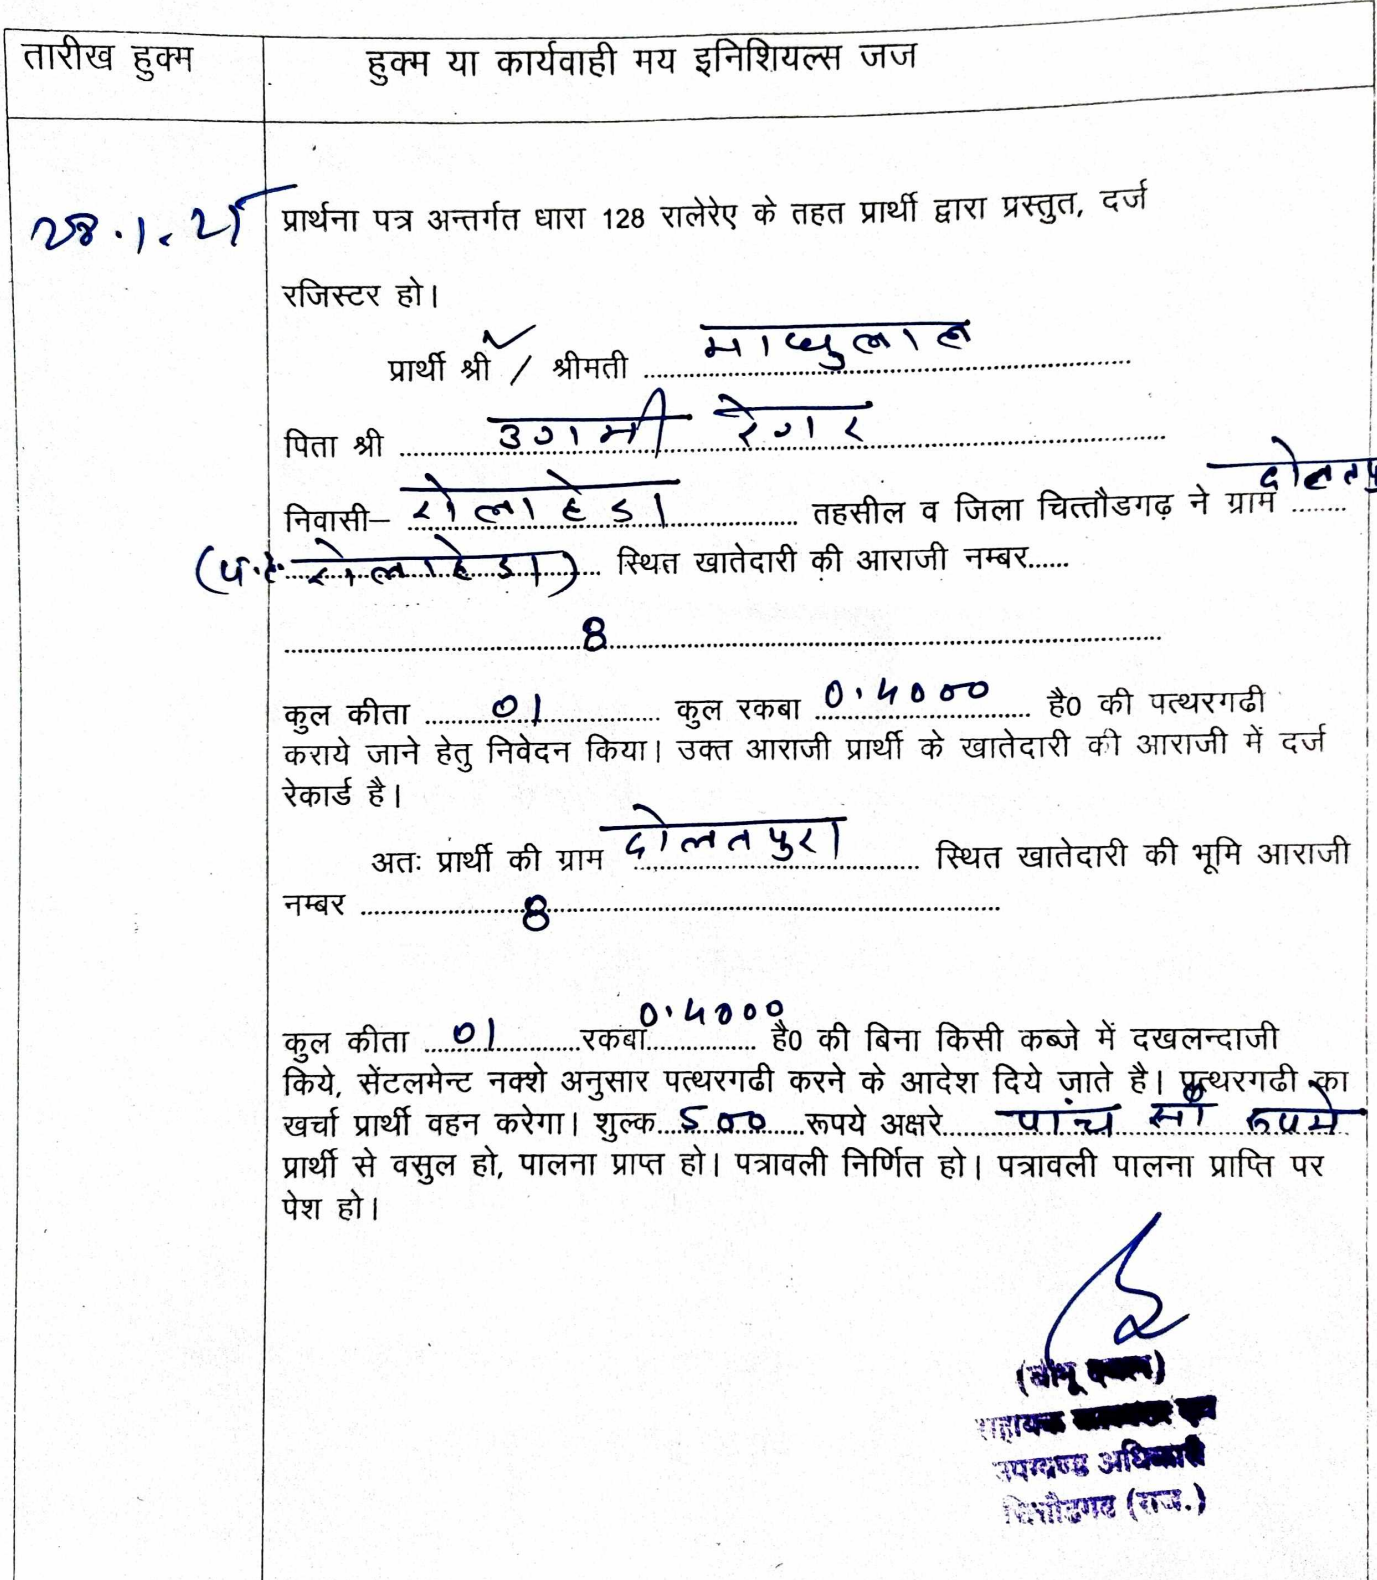 तारीख हुक्म
हुक्म या कार्यवाही मय इनिशियल्स जज
28.1.25
प्रार्थना पत्र अन्तर्गत धारा 128 रालेरेए के तहत प्रार्थी द्वारा प्रस्तुत, दर्ज
रजिस्टर हो।
प्रार्थी श्री / श्रीमती ........ माधुलाल ........
पिता श्री ........ उगमी रेगर ........
निवासी– रोलाहेडा ........ तहसील व जिला चित्तौडगढ़ ने ग्राम दोलतपु
(प.ह. रोलाहेडा) ... स्थित खातेदारी की आराजी नम्बर......
........ 8 ........
कुल कीता ........ 01 ........ कुल रकबा 0.4000 है0 की पत्थरगढी
कराये जाने हेतु निवेदन किया। उक्त आराजी प्रार्थी के खातेदारी की आराजी में दर्ज
रेकार्ड है।
अतः प्रार्थी की ग्राम दोलतपुरा ........ स्थित खातेदारी की भूमि आराजी
नम्बर ........ 8 ........
कुल कीता ... 01 ........ रकबा 0.4000 है0 की बिना किसी कब्जे में दखलन्दाजी
किये, सेंटलमेन्ट नक्शे अनुसार पत्थरगढी करने के आदेश दिये जाते है। पत्थरगढी का
खर्चा प्रार्थी वहन करेगा। शुल्क... 500 ...रूपये अक्षरे........ पांच सौ रूपये
प्रार्थी से वसुल हो, पालना प्राप्त हो। पत्रावली निर्णित हो। पत्रावली पालना प्राप्ति पर
पेश हो।
सहायक
उपखण्ड अधिकारी
चित्तौडगढ (राज.)